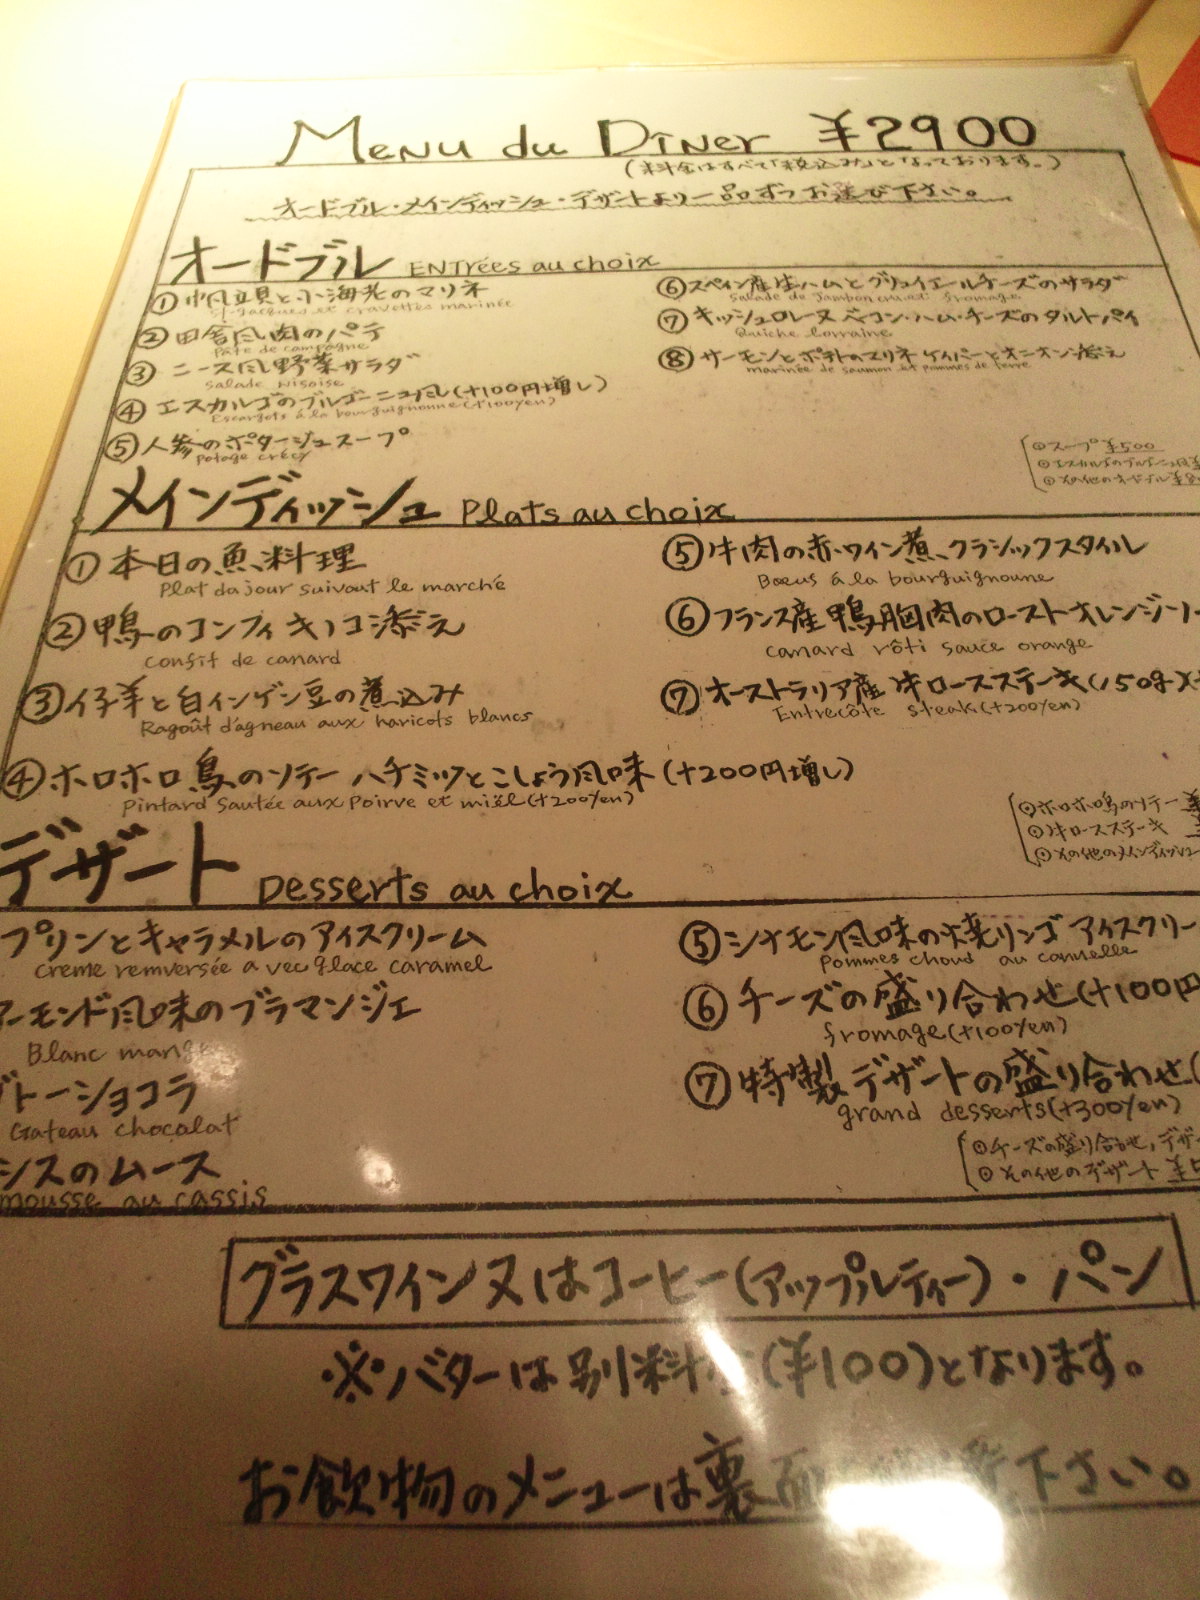 Menu du Dîner ¥2900
(料金はすべて「税込み」となっております。)
オードブル・メインディッシュ・デザートより一品ずつお選び下さい。
オードブル ENTrées au choix
① 帆立貝と小海老のマリネ
St-Jacques et crevettes marinée
② 田舎風肉のパテ
Pâte de campagne
③ ニース風野菜サラダ
salade Nisoise
④ エスカルゴのブルゴーニュ風(+100円増し)
Escargots à la bourguignonne(+100yen)
⑤ 人参のポタージュスープ
Potage crécy
⑥ スペイン産生ハムとグリュイエールチーズのサラダ
Salade de Jambon cru et fromage
⑦ キッシュロレーヌ ベーコン・ハム・チーズのタルトパイ
Quiche lorraine
⑧ サーモンとポテトのマリネ ケイパーとオニオン添え
marinée de saumon et pommes de terre
⊙スープ ¥500
⊙エスカルゴのブルゴーニュ風
⊙その他のオードブル
メインディッシュ Plats au choix
① 本日の魚料理
Plat du jour suivant le marché
② 鴨のコンフィ キノコ添え
confit de canard
③ 仔羊と白インゲン豆の煮込み
Ragoût d'agneau aux haricots blancs
④ ホロホロ鳥のソテー ハチミツとこしょう風味(+200円増し)
Pintard Sautée aux Poirve et mièl(+200yen)
⑤ 牛肉の赤ワイン煮、クラシックスタイル
Bœus á la bourguignoune
⑥ フランス産鴨胸肉のローストオレンジソー
canard rôti sauce orange
⑦ オーストラリア産牛ロースステーキ(150g)
Entrecôte steak(+200yen)
⊙ホロホロ鳥のソテー
⊙牛ロースステーキ
⊙その他のメインディッシュ
デザート Desserts au choix
プリンとキャラメルのアイスクリーム
creme remversée avec glace caramel
アーモンド風味のブラマンジェ
Blanc mange
ガトーショコラ
Gateau chocolat
シスのムース
mousse au cassis
⑤ シナモン風味の焼リンゴ アイスクリー
Pommes choud au cannelle
⑥ チーズの盛り合わせ(+100円
fromage(+100yen)
⑦ 特製デザートの盛り合わせ(
grand desserts(+300yen)
⊙チーズの盛り合わせ、デザ
⊙その他のデザート
グラスワイン又はコーヒー(アップルティー)・パン
※バターは別料金(¥100)となります。
お飲物のメニューは裏面 下さい。